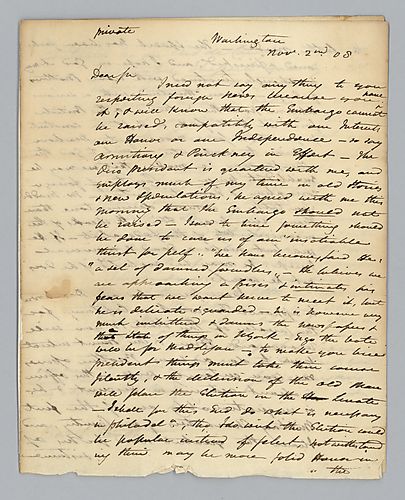 private
Washington
Nov. 2nd 08
Dear Sir
I need not say any thing to you
respecting foreign news because you
& will know that the Embargo cannot
be raised, compatibly with our Interest
our Honor or our Independence – so say
Armstrong & Pinckney in Effect – The
Vice President is quartered with me, and
employs much of my time in old Stories
& new Speculations, he agreed with me this
Morning that the Embargo should not
be raised – &
to cure us of our insatiable
thirst for pelf. We have become, said He,
"a set of damned swindlers, – He believes we
are approaching a Crisis & intimates his
fears that we want nerve to meet it, but
he is delicate & guarded – he is however very
much imbittered & damns the newspapers &
the State of things in NYork
will be for Madison – to make you
president things must take their course
& the declension of the old Man
will place the Election in the Senate
– for this End do what is necessary
in Philadela. tho I do wish the Election could
be popular instead of select, notwithstand
ing there may be more solid Honor in
" the